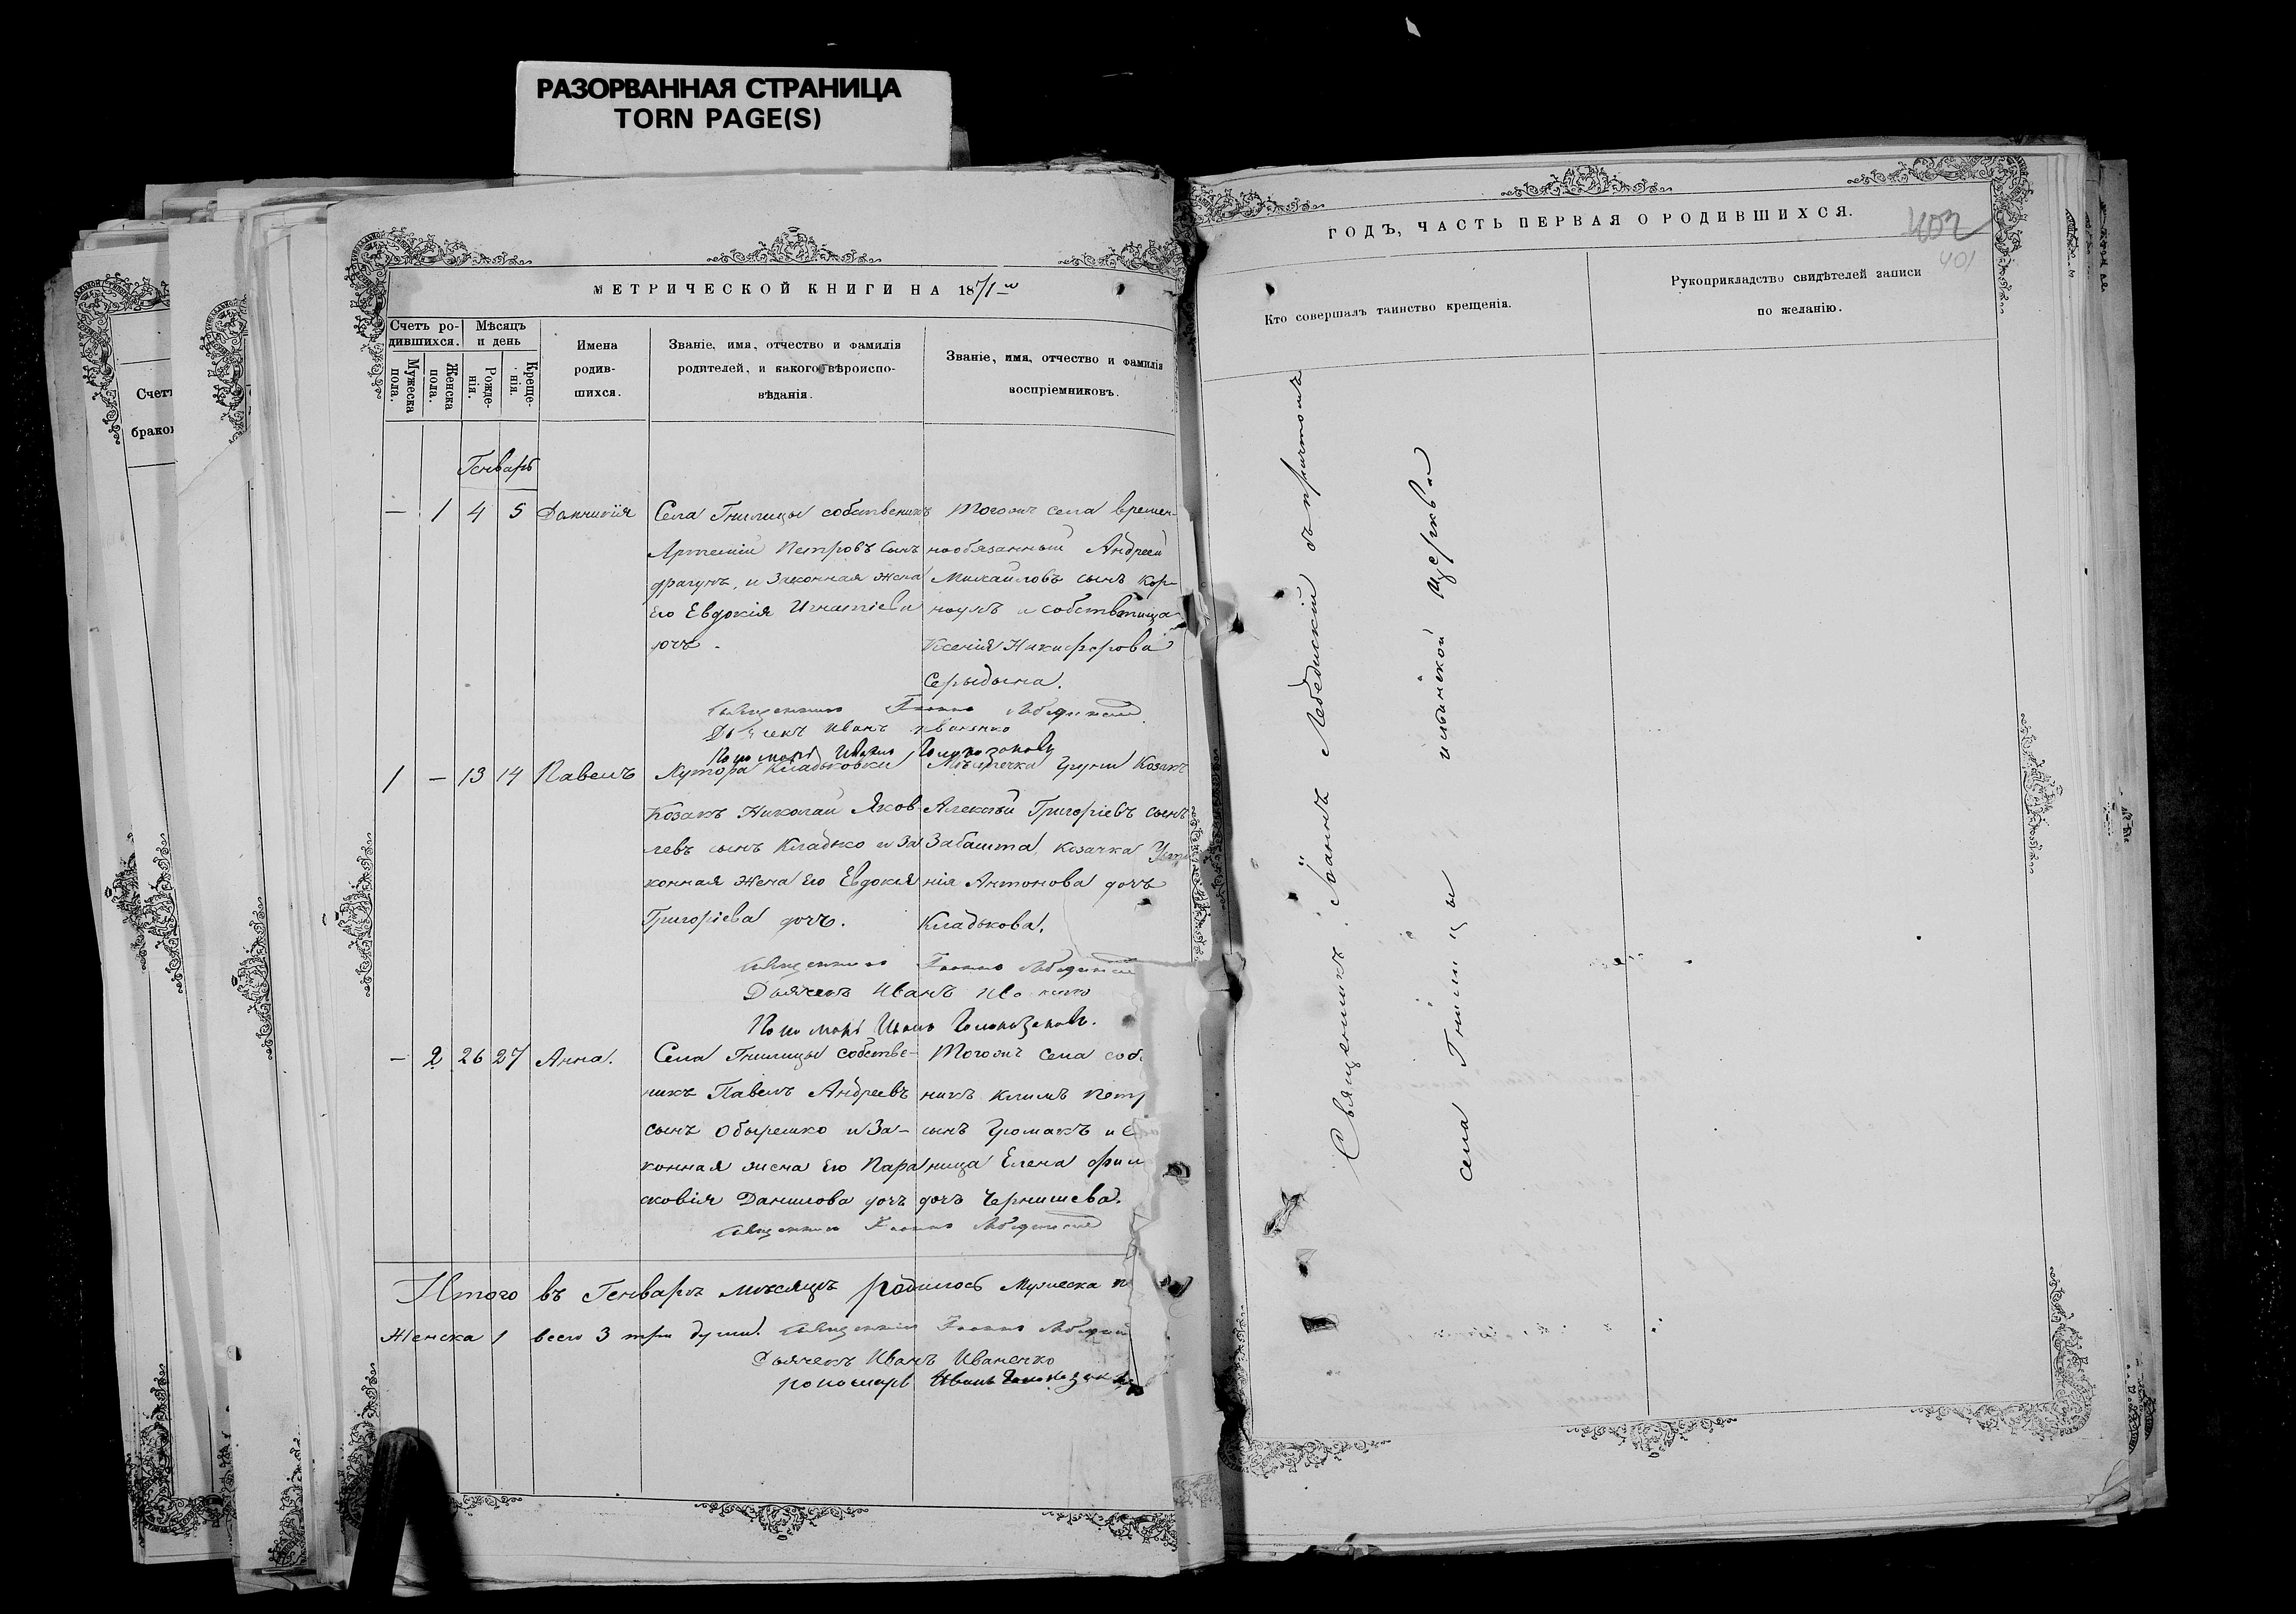 РАЗОРВАННАЯ СТРАНИЦА
TORN PAGE(S)
Счетъ
браков
МЕТРИЧЕСКОЙ КНИГИ НА 1871-й
Счетъ ро-
дившихся.
Мѣсяцъ
и день
Мужеска
пола.
Женска
пола.
Рожде-
нія.
Креще-
нія.
Имена
родив-
шихся.
Званіе, имя, отчество и фамилія
родителей, и какого вѣроиспо-
вѣданія.
Званіе, имя, отчество и фамилія
воспріемниковъ.
Генварь
— 1 4 5 Домникія
Села Гнилицы собственикъ
Артемій Петровъ сынъ
драгунъ, и законная жена
Его Евдокія Игнатіева
Тогожъ села времен-
нообязанный Андрей
Михайловъ сынъ
и
Ксенія Никифорова
Священникъ Іоаннъ Лебединскій
Дьячекъ Иванъ Иваненко
Пономарь Иванъ
1 — 13 14 Павелъ
Хутора Кладьковки
Козакъ Николай Яков
левъ сынъ Кладько и За
конная жена Его Евдокія
Григоріева дочь.
Мѣстечка Груни Козакъ
Алексѣй Григоріевъ сынъ
Забашта, козачка Усти
нія Антонова дочь
Кладькова.
Священникъ Іоаннъ Лебединскій
Дьячекъ Иванъ Иваненко
Пономарь Иванъ
— 2 26 27 Анна.
Села Гнилицы собстве-
никъ Павелъ Андреевъ
сынъ и За-
конная жена Его Пара
сковія Данилова дочь
Тогожъ села соб
никъ Климъ Петр
сынъ и С
ница Елена Фил
дочь Чернишева.
Священникъ Іоаннъ Лебединскій
Итого въ Генварѣ мѣсяцѣ родилось Мужеска п
Женска 1 всего 3 три души. Священникъ Іоаннъ Лебедин
Дьячекъ Иванъ Иваненко
пономарь Иванъ
ГОДЪ, ЧАСТЬ ПЕРВАЯ О РОДИВШИХСЯ.
402
401
Кто совершалъ таинство крещенія.
Рукоприкладство свидѣтелей записи
по желанію.
Священникъ Іоаннъ Лебединскій съ причтомъ
села Гнилицы Ильинской Церкви